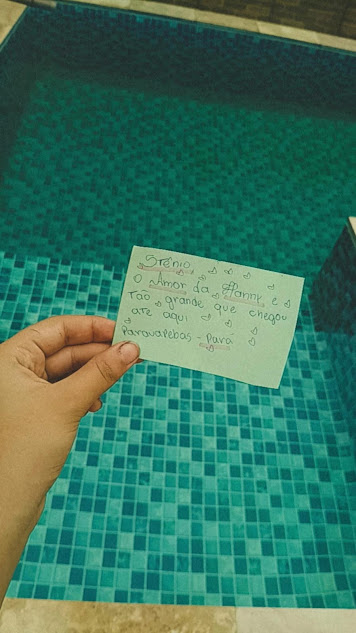 Stênio
O Amor da Hanny é
Tão grande que chegou
até aqui
Parauapebas - Pará